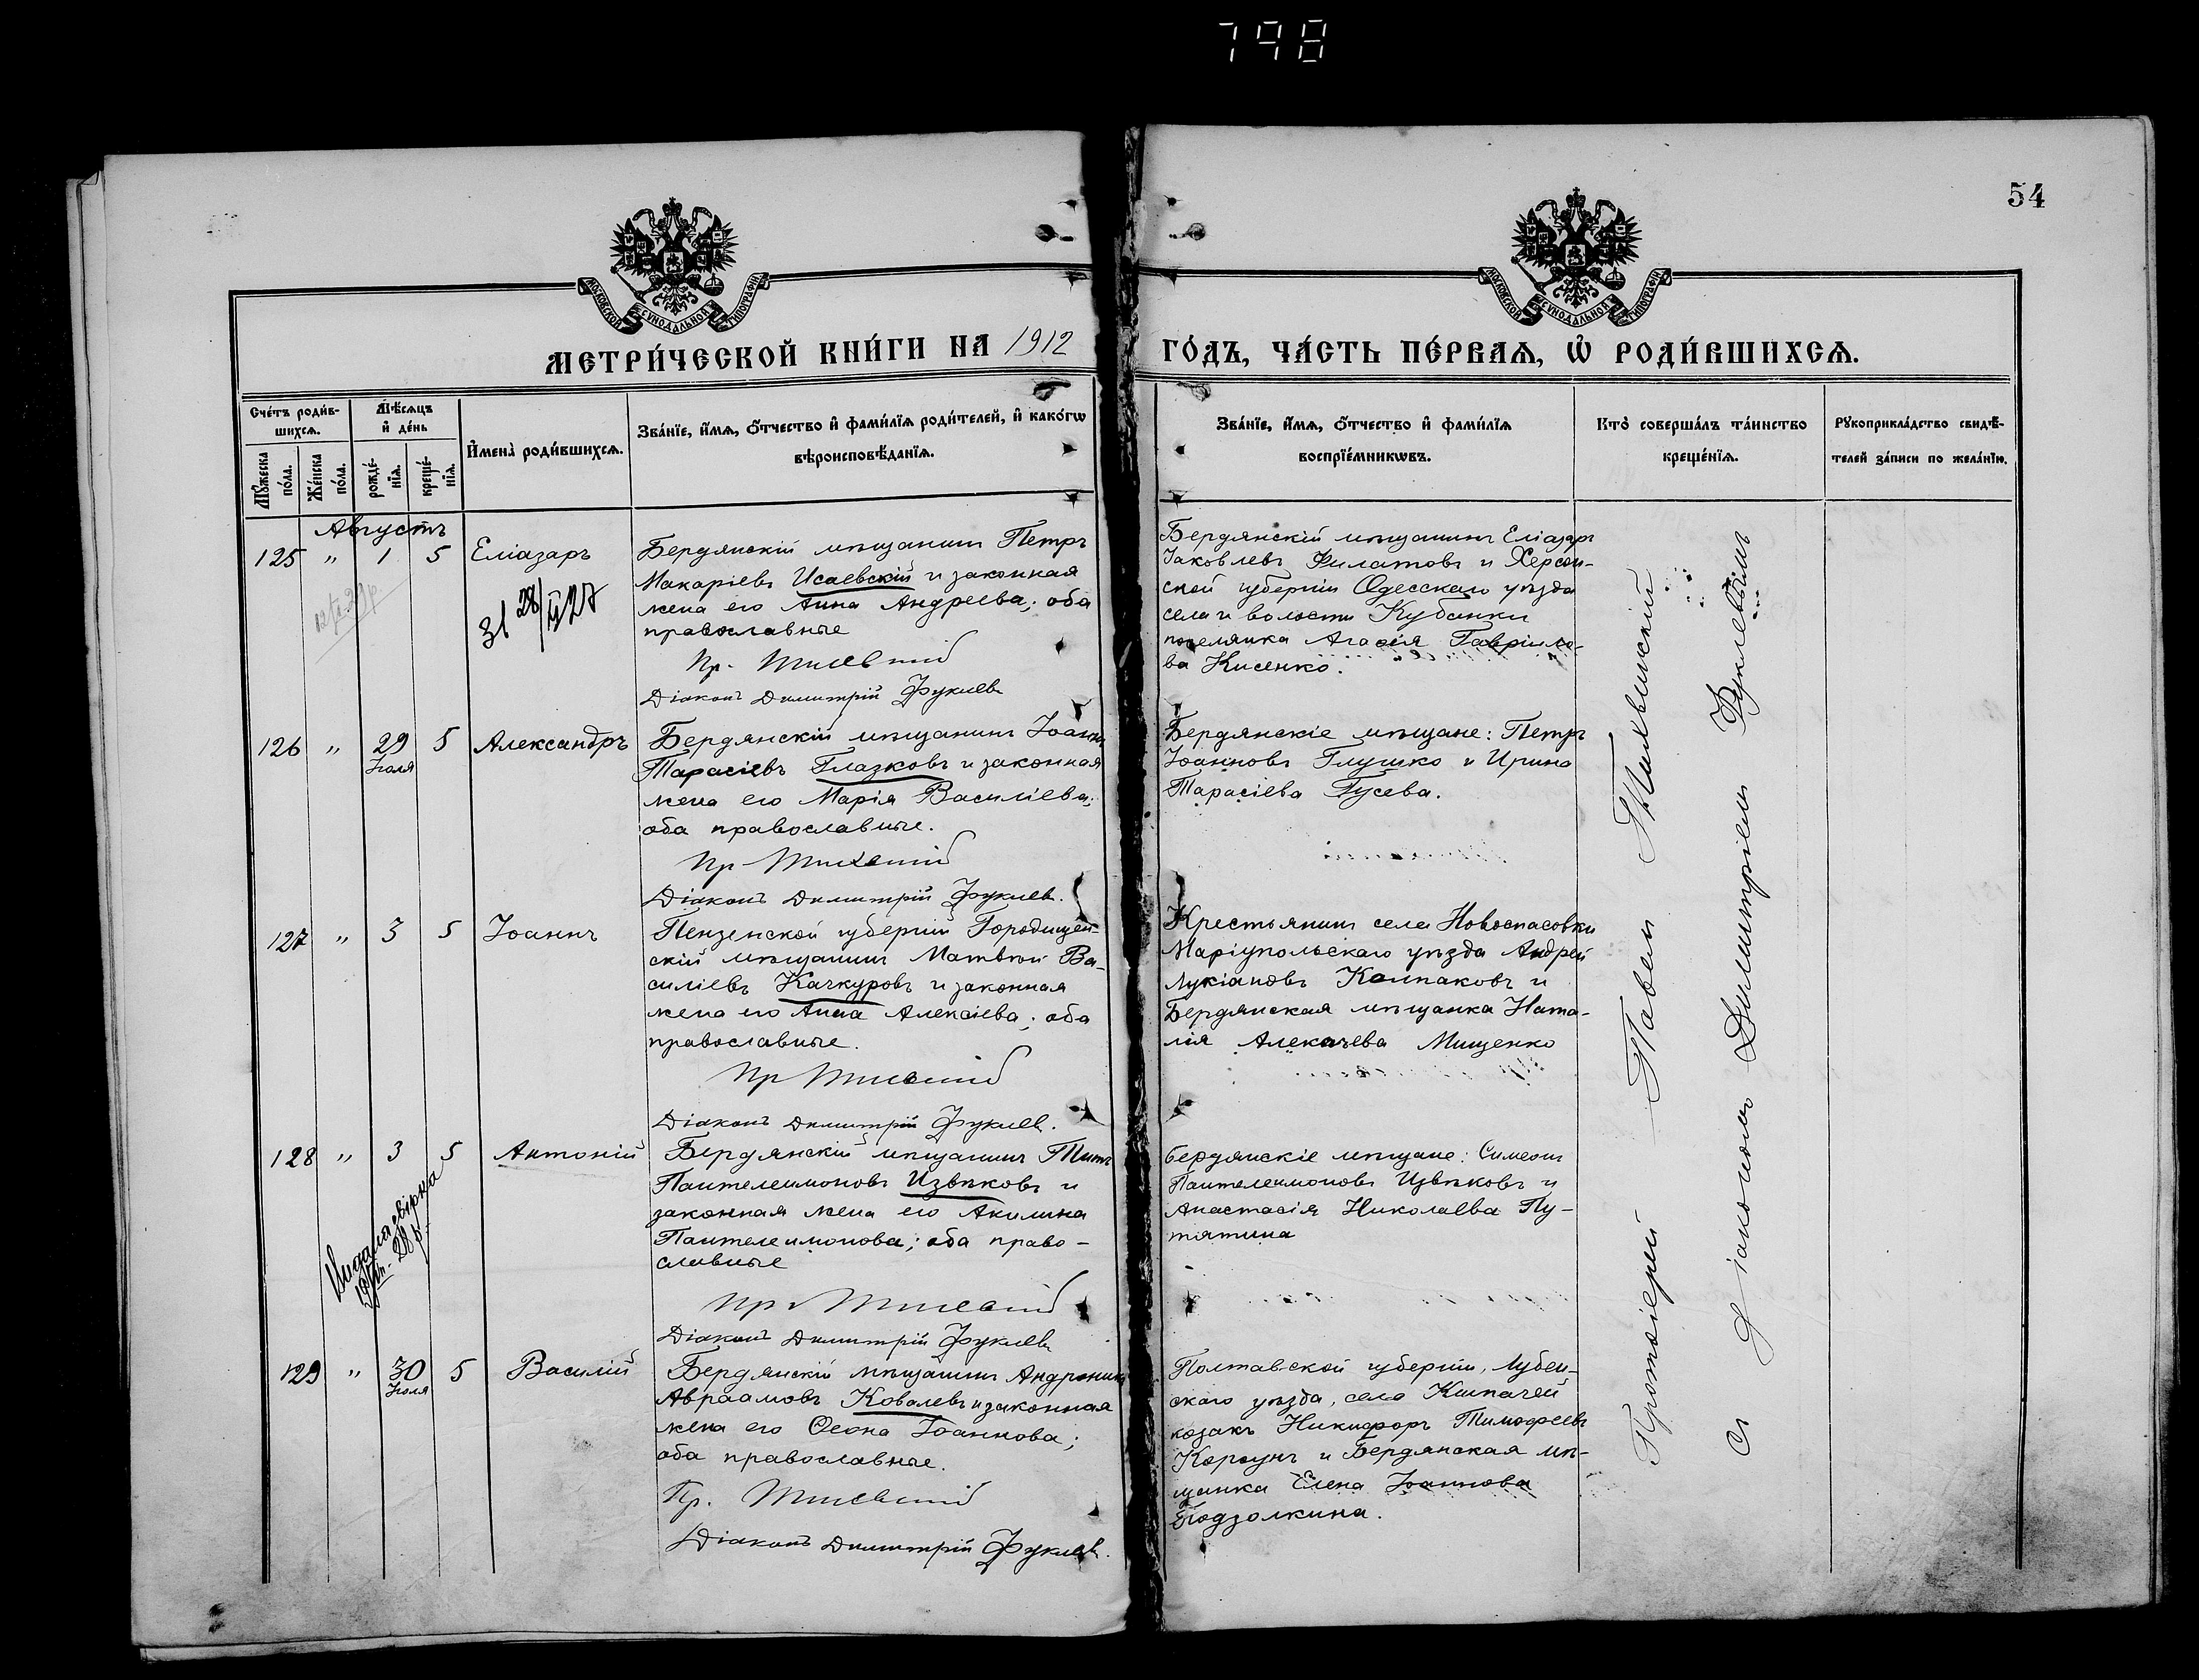 798
54
МОСКОВСКОЙ СѴНОДАЛЬНОЙ ТИПОГРАФІИ
МОСКОВСКОЙ СѴНОДАЛЬНОЙ ТИПОГРАФІИ
МЕТРИ́ЧЕСКОЙ КНИ́ГИ НА 1912
ГО́ДЪ, ЧА́СТЬ ПЕ́РВАѦ, Ѽ РОДИ́ВШИХСѦ.
Сче́тъ роди́в-
шихсѧ.
Мѣ́сѧцъ
и҆ де́нь
Мꙋ́жеска
по́ла.
Же́нска
по́ла.
рожде́-
нїѧ.
креще́-
нїѧ.
И҆мена̀ роди́вшихсѧ.
Зва́нїе, и҆́мѧ, ѻ҆́тчество и҆ фами́лїѧ роди́телей, и҆ како́гѡ
вѣроисповѣ́данїѧ.
Зва́нїе, и҆́мѧ, ѻ҆́тчество и҆ фами́лїѧ
воспрїе́мникѡвъ.
Кто̀ соверша́лъ та́инство
креще́нїѧ.
Рꙋкоприкла́дство свидѣ́-
телей за́писи по жела́нїю.
Августъ
125 " 1 5 Еліазаръ
31 28/II 27
Бердянскій мѣщанинъ Петръ
Макаріевъ Исаевскій и законная
жена его Анна Андреева; оба
православные
Пр.
Діаконъ Димитрій Фуклевъ
Бердянскій мѣщанинъ Еліазаръ
Іаковлевъ Филатовъ и Херсон-
ской губерніи Одесскаго уѣзда
села и волости Кубанки
поселянка Агаѳія Гаврило-
ва Кисенко.
126 " 29 Іюля 5 Александръ
Бердянскій мѣщанинъ Іоаннъ
Тарасіевъ Глазковъ и законная
жена его Марія Василіева;
оба православные.
Пр
Діаконъ Димитрій Фуклевъ.
Бердянскіе мѣщане: Петръ
Іоанновъ Глушко и Ирина
Тарасіева Гусева.
127 " 3 5 Іоаннъ
Пензенской губерніи Городищен-
скій мѣщанинъ Матвѣй Ва-
силіевъ Качкуровъ и законная
жена его Анна Алексіева; оба
православные.
Пр
Діаконъ Димитрій Фуклевъ.
Крестьянинъ села Новоспасовки
Маріупольскаго уѣзда Андрей
Лукіановъ Колпаковъ и
Бердянская мѣщанка Ната-
лія Алексіева Мищенко
128 " 3 5 Антоній
Бердянскій мѣщанинъ Титъ
Пантелеимоновъ Извѣковъ и
законная жена его Акилина
Пантелеимонова; оба право-
славные
Пр
Діаконъ Димитрій Фуклевъ
Бердянскіе мѣщане: Симеонъ
Пантелеимоновъ Извѣковъ и
Анастасія Николаева Пу-
тятина
129 " 30 Іюля 5 Василій
Бердянскій мѣщанинъ Андроникъ
Авраамовъ Ковалевъ и законная
жена его Ѳеона Іоаннова;
оба православные.
Пр.
Діаконъ Димитрій Фуклевъ.
Полтавской губерніи, Лубен-
скаго уѣзда, села
козакъ Никифоръ Тимофеевъ
Корсунъ и Бердянская мѣ-
щанка Елена Іоаннова
Подзолкина.
Протоіерей Павелъ
съ діакономъ Димитріемъ Фуклевымъ